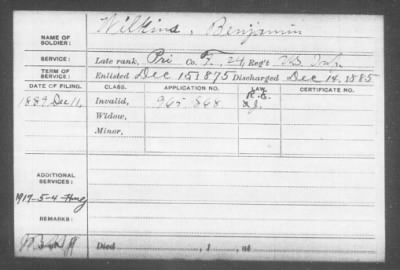 NAME OF SOLDIER: Wilkins, Binjamin
SERVICE: Late rank, Pri Co. F, 24 Reg't U.S. Inf.
TERM OF SERVICE: Enlisted Dec 15 1875 Discharged Dec 14, 1885
DATE OF FILING. CLASS. APPLICATION NO. LAW. CERTIFICATE NO.
1889 Dec 11, Invalid, 965 868
Widow,
Minor,
ADDITIONAL SERVICES:
1917-5-4
REMARKS:
Died , 1 , at